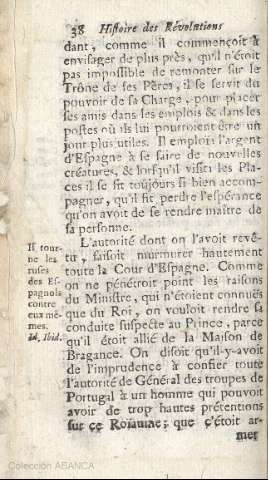 38 Histoire des Révolutions
dant, comme il commençoit à
envisager de plus près, qu'il n'étoit
pas impossible de remonter sur le
Trône de ses Péres, il se servit du
pouvoir de sa Charge, pour placer
ses amis dans les emplois & dans les
postes où ils lui pourroient être un
jour plus utiles. Il emploïa l'argent
d'Espagne à se faire de nouvelles
créatures, & lorsqu'il visita les Pla-
ces il se fit toûjours si bien accom-
pagner, qu'il fit perdre l'espérance
qu'on avoit de se rendre maître de
sa personne.
L'autorité dont on l'avoit revê-
tu, faisoit murmurer hautement
toute la Cour d'Espagne. Comme
on ne pénétroit point les raisons
du Ministre, qui n'étoient connuës
que du Roi, on vouloit rendre sa
conduite suspecte au Prince, parce
qu'il étoit allié de la Maison de
Bragance. On disoit qu'il-y-avoit
de l'imprudence à confier toute
l'autorité de Général des troupes de
Portugal à un homme qui pouvoit
avoir de trop hautes prétentions
sur ce Roïaume; que c'étoit ar-
mer
Il tour-
ne les
ruses
des Es-
pagnols
contre
eux mê-
mes.
Id. Ibid.
Colección ABANCA